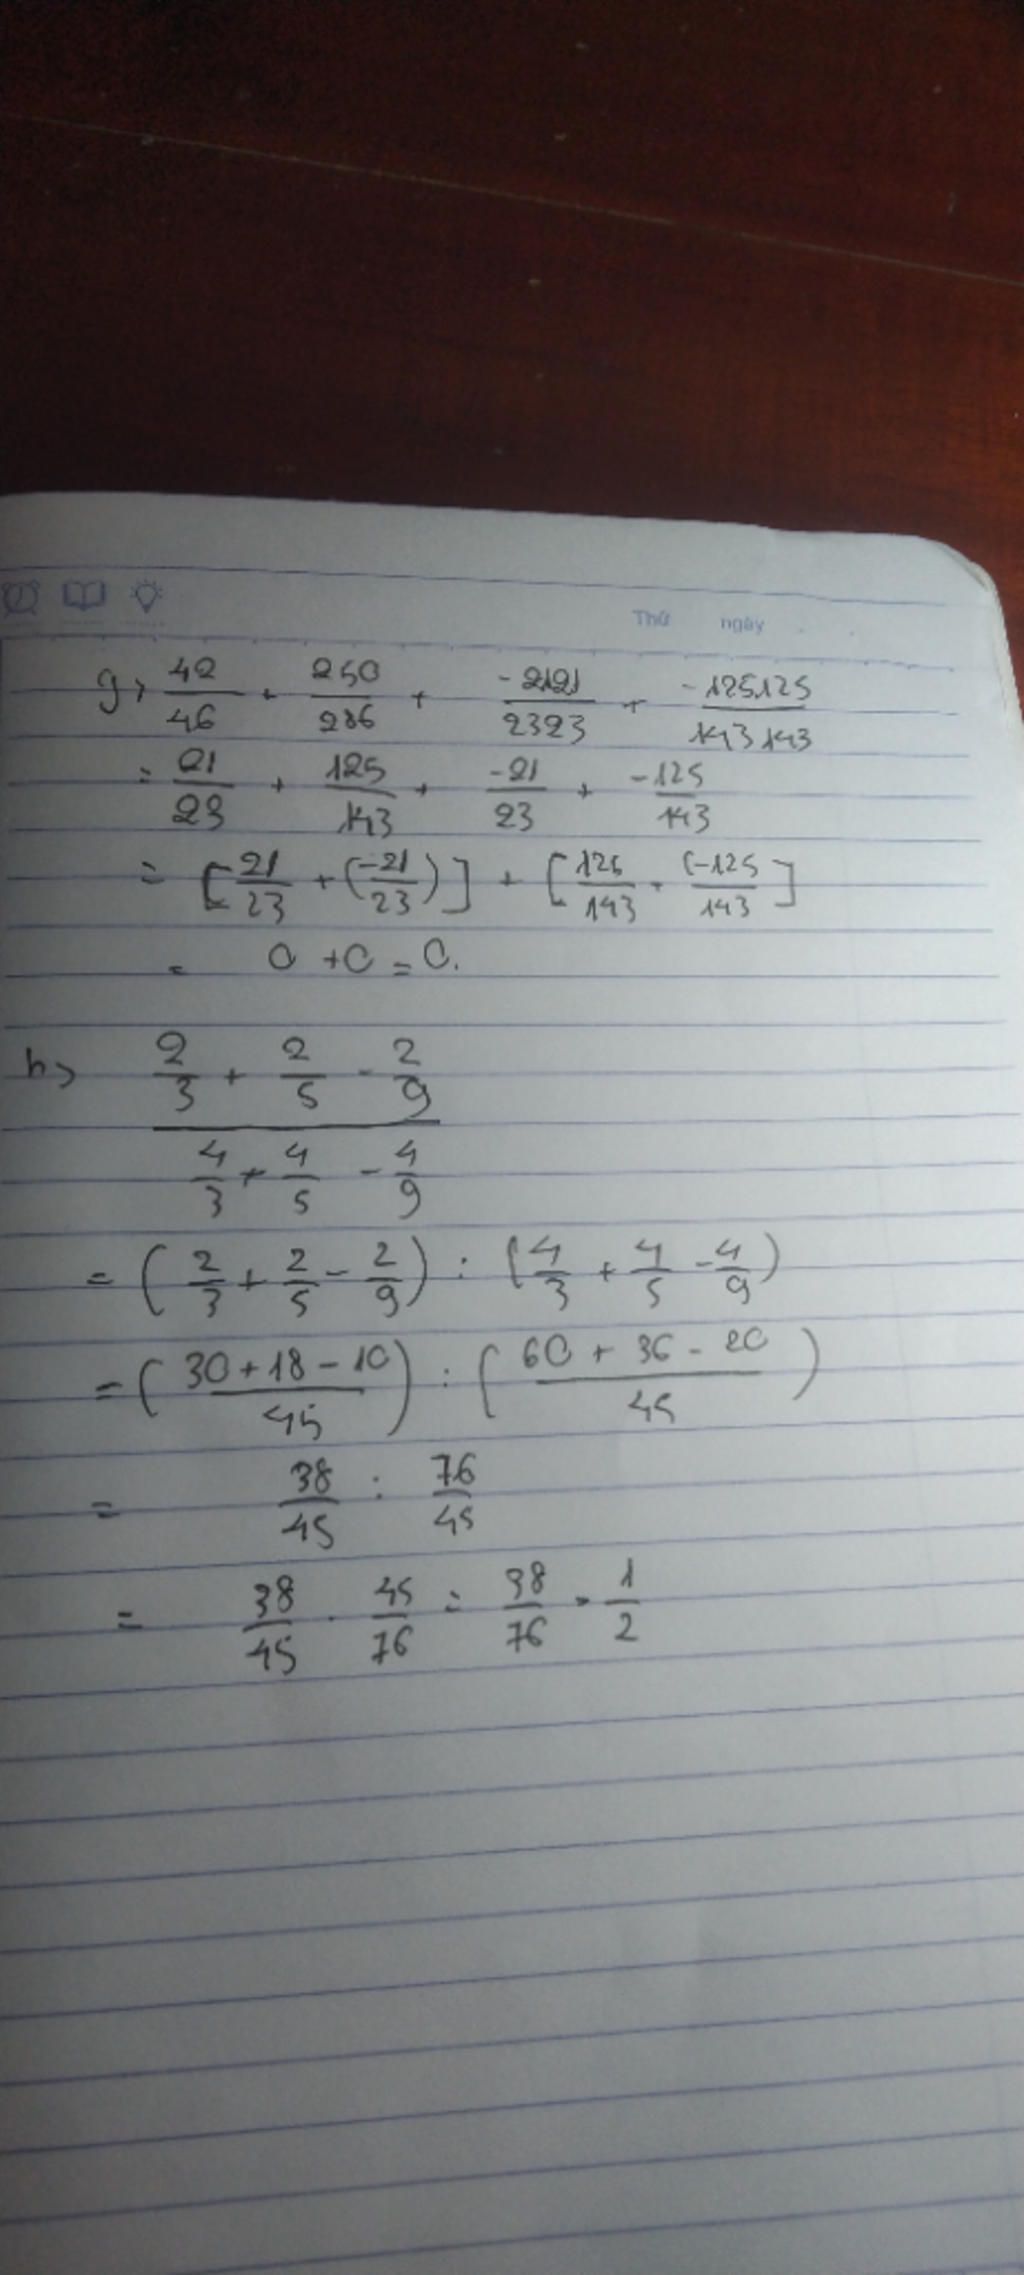 Thứ ngày
g> 42/46 + 250/286 + -2121/2323 + -125125/143143
= 21/23 + 125/143 + -21/23 + -125/143
= [21/23 + (-21/23)] + [125/143 + (-125/143]
= 0 + 0 = 0.
h> (2/3 + 2/5 - 2/9)/(4/3 + 4/5 - 4/9)
= (2/3 + 2/5 - 2/9) : (4/3 + 4/5 - 4/9)
= (30+18-10/45) : (60 + 36 - 20/45)
= 38/45 : 76/45
= 38/45 . 45/76 = 38/76 = 1/2